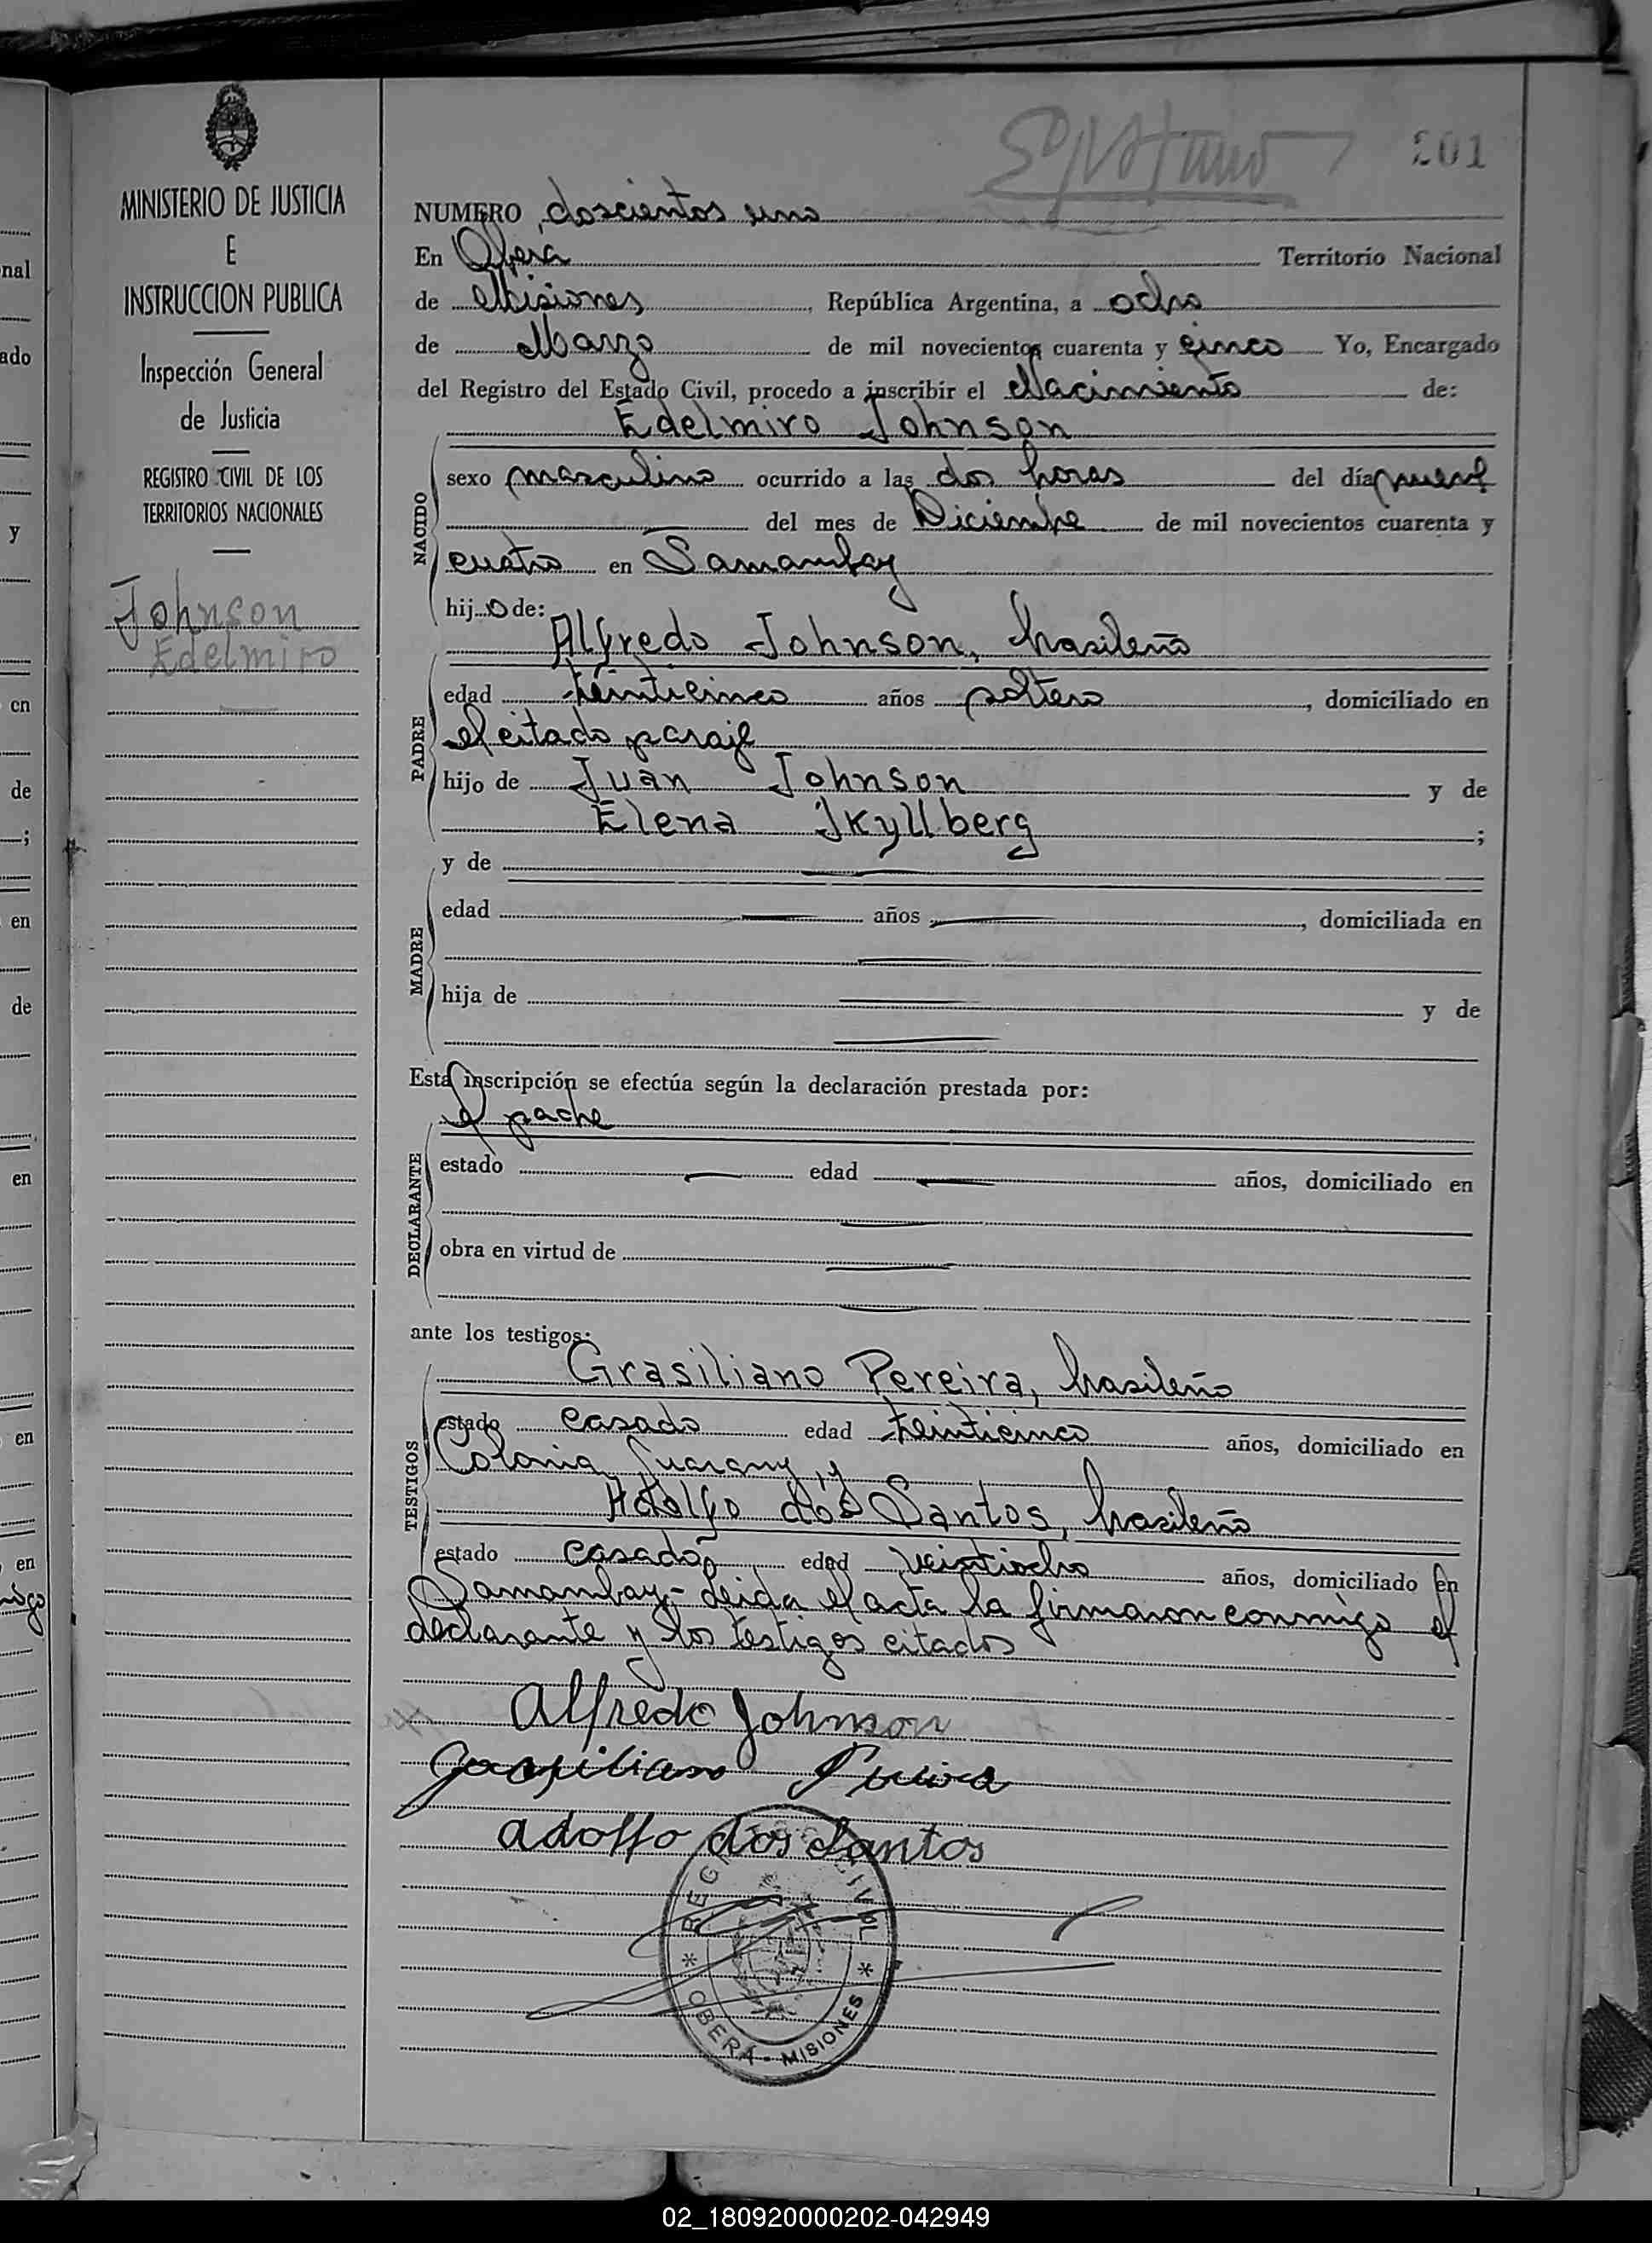 201
MINISTERIO DE JUSTICIA
E
INSTRUCCION PUBLICA
Inspección General
de Justicia
REGISTRO CIVIL DE LOS
TERRITORIOS NACIONALES
Johnson
Edelmiro
NUMERO doscientos uno
En Oberá Territorio Nacional
de Misiones, República Argentina, a ocho
de Marzo de mil novecientos cuarenta y cinco Yo, Encargado
del Registro del Estado Civil, procedo a inscribir el Nacimiento de:
Edelmiro Johnson
NACIDO
sexo masculino ocurrido a las dos horas del día nueve
del mes de Diciembre de mil novecientos cuarenta y
cuatro en Samambay
hijo de:
Alfredo Johnson, brasileño
PADRE
edad veinticinco años soltero, domiciliado en
el citado paraje
hijo de Juan Johnson y de
Elena Skyllberg;
y de
MADRE
edad años, domiciliada en
hija de y de
Esta inscripción se efectúa según la declaración prestada por:
el padre
DECLARANTE
estado edad años, domiciliado en
obra en virtud de
ante los testigos:
Grasiliano Pereira, brasileño
TESTIGOS
estado casado edad veinticinco años, domiciliado en
Colonia Guarany y
Adolfo dos Santos, brasileño
estado casado edad veintiocho años, domiciliado en
Samambay- Leida el acta la firmaron conmigo el
declarante y los testigos citados
Alfredo Johnson
Grasiliano Pereira
Adolfo dos Santos
REGISTRO CIVIL
* OBERÁ - MISIONES *
nal
ado
y
en
de
;
en
de
en
en
en
02_180920000202-042949